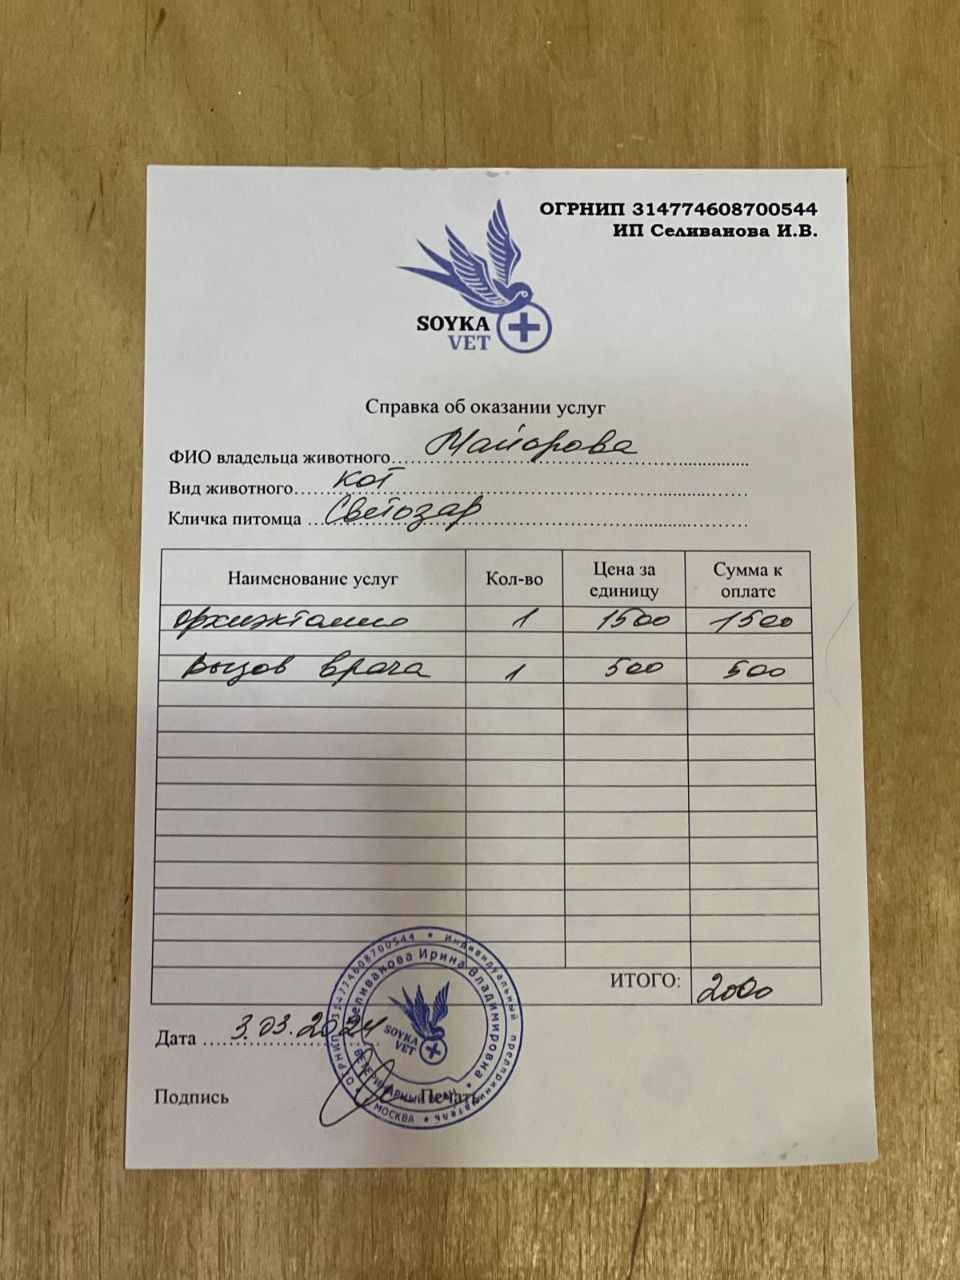 ОГРНИП 314774608700544
ИП Селиванова И.В.
SOYKA
VET
Справка об оказании услуг
ФИО владельца животного Майорова
Вид животного кот
Кличка питомца Светозар
Наименование услуг Кол-во Цена за единицу Сумма к оплате
1 1500 1500
Вызов врача 1 500 500
ИТОГО: 2000
Дата 3.03.2024
Подпись Печать
ОГРНИП 314774608700544 * Индивидуальный предприниматель * МОСКВА *
Селиванова Ирина Владимировна * ВЕТЕРИНАРНЫЙ
SOYKA
VET